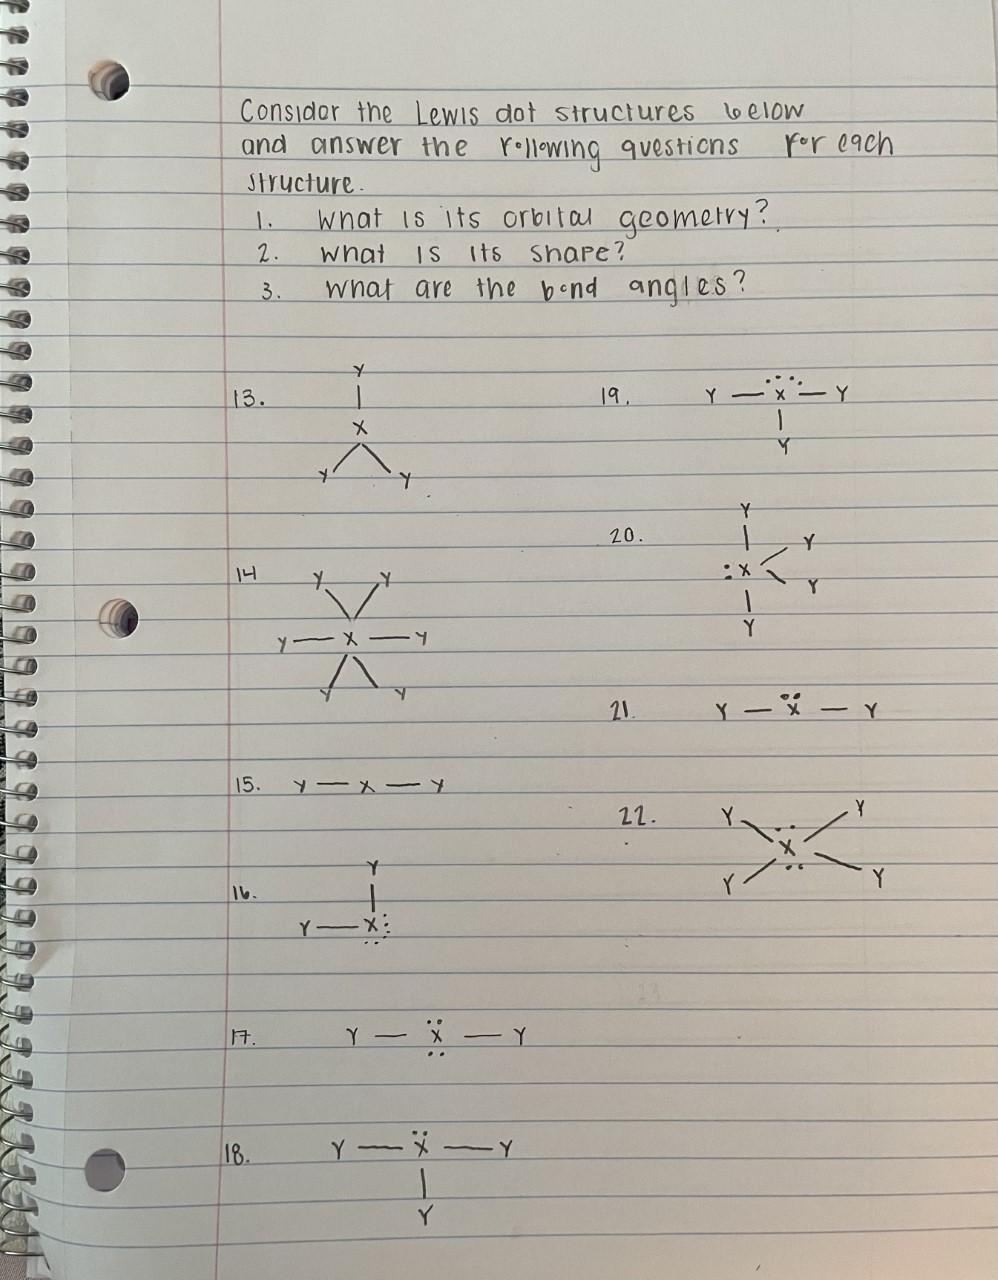 Considor the Lewis dot structures below
and answer the following questions for each
structure.
1. What is its orbital geometry?
2. What is its shape?
3. What are the bond angles?
13.
Y
X
Y Y
14
Y Y
Y — X — Y
Y Y
15. Y — X — Y
16.
Y
Y — X:
17. Y — Ẍ — Y
18. Y — Ẍ — Y
Y
19. Y — X — Y
Y
20.
Y
Y
:X
Y
Y
21. Y — Ẍ — Y
22.
Y Y
X
Y Y